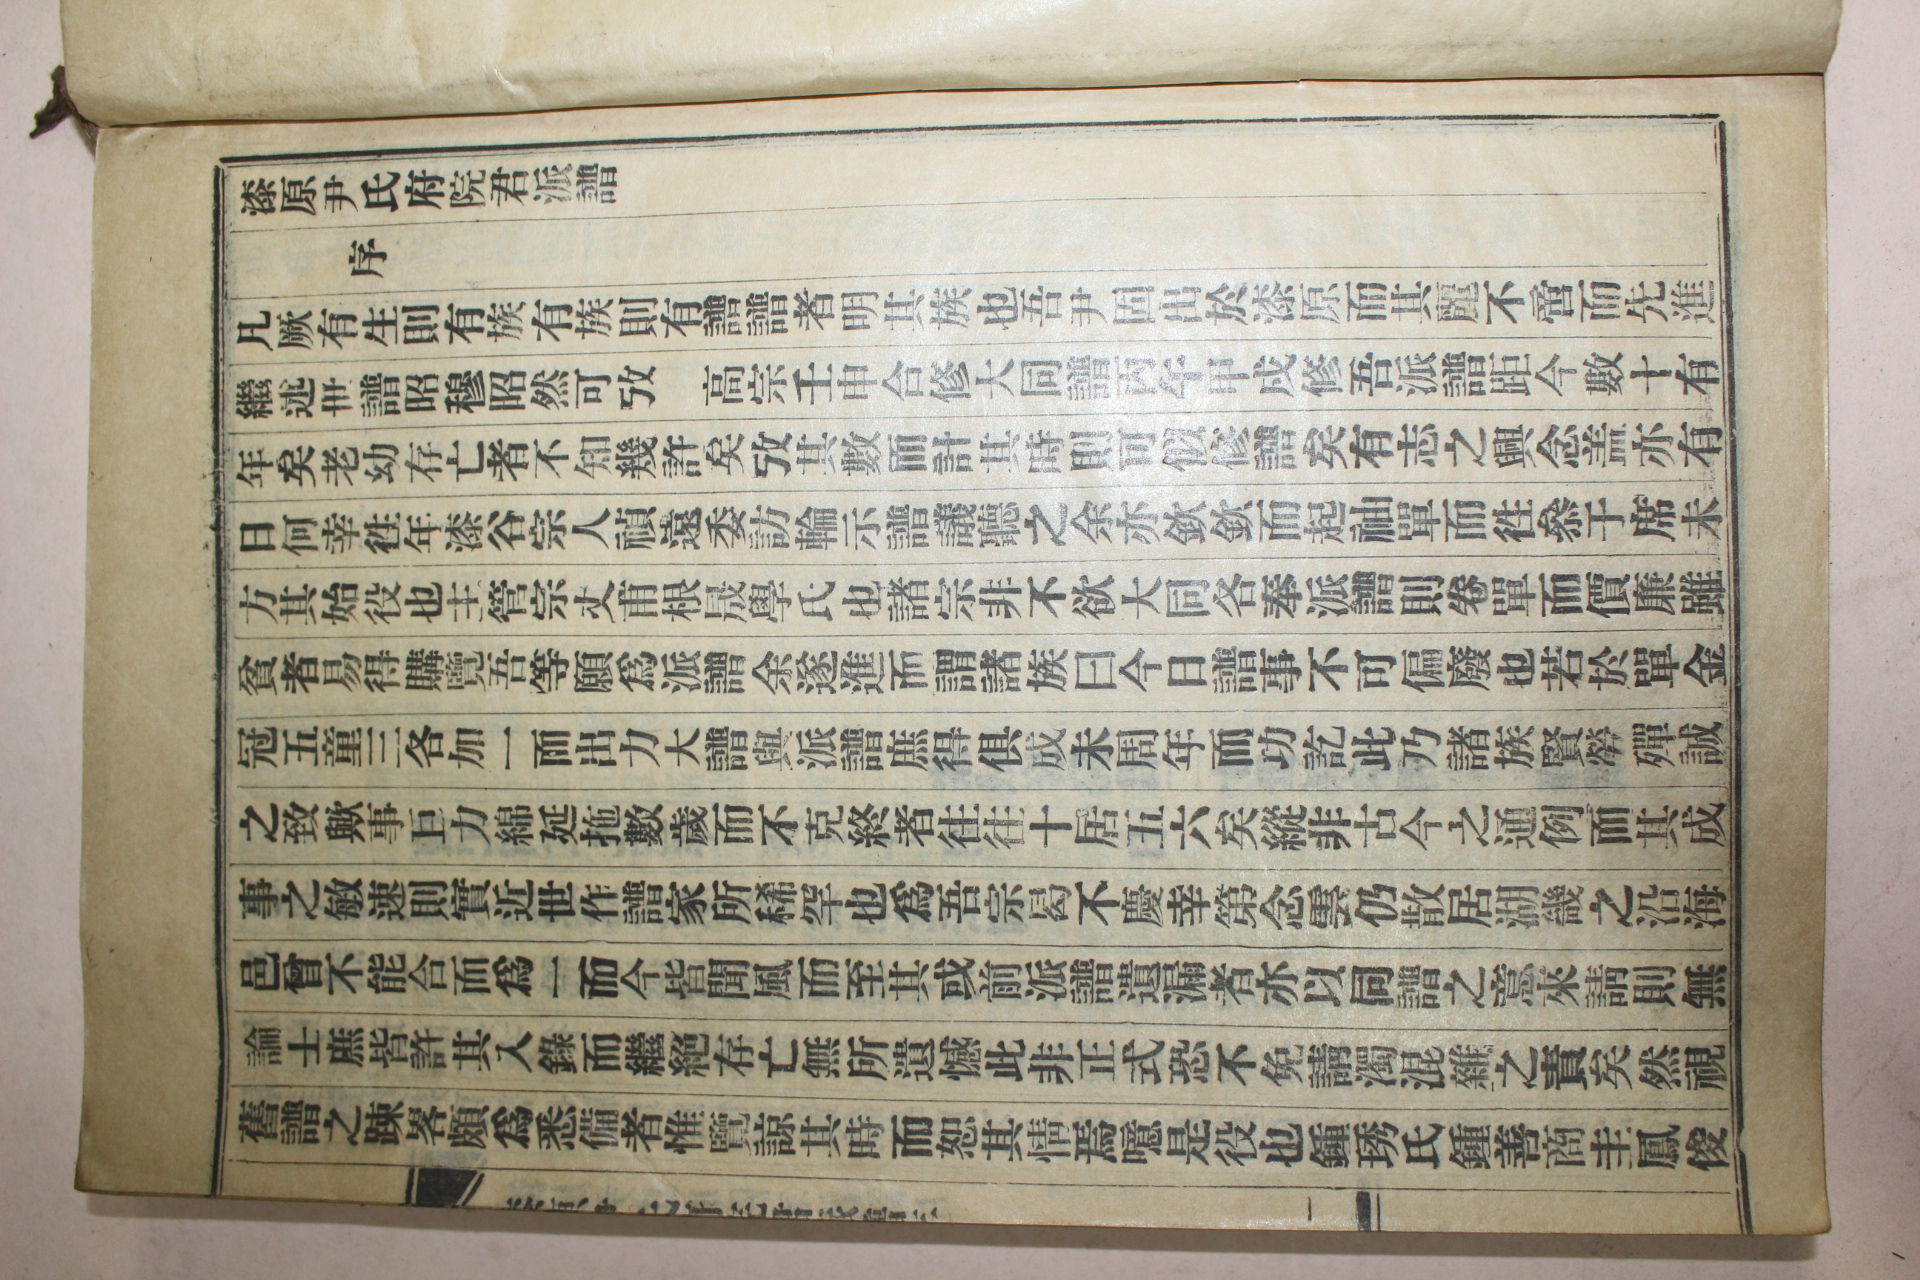 漆原尹氏府院君派譜
序
凡厥有生則有族有族則有譜譜者明其族也吾尹固出於漆原而其麗不啻而先進
繼述世譜昭穆昭然可攷 高宗壬申合修大同譜丙午甲戌修吾派譜距今數十有
年矣老幼存亡者不知幾許矣攷其數而計其時則可似修譜矣有志之興念盖亦有
日何幸徃年漆谷宗人禎遠委訪輪示譜議聽之余亦欽欽而起袖單而徃參于席未
方其始役也主管宗丈甫根晟學氏也諸宗非不欲大同各奉派譜則卷單而價廉雖
貧者易得購覽吾等願爲派譜余遂進而謂諸族曰今日譜事不可偏廢也若於單金
冠五童三各加一而出力大譜與派譜庶得俱成未周年而功訖此乃諸族賢勞殫誠
之致歟事巨力綿延拖數歲而不克終者往往十居五六矣縱非古今之通例而其成
事之敏速則實近世作譜家所稀罕也爲吾宗曷不慶幸第念雲仍散居湖畿之沿海
邑曾不能合而爲一而今皆聞風而至其或前派譜遺漏者亦以同譜之意來請則無
論士庶皆許其入錄而繼絕存亡無所遺憾此非正式恐不免請濁混雜之責矣然視
舊譜之踈畧頗爲悉備者惟覽諒其時而恕其情焉噫是役也鍾琇氏鍾善商圭鳳俊
一